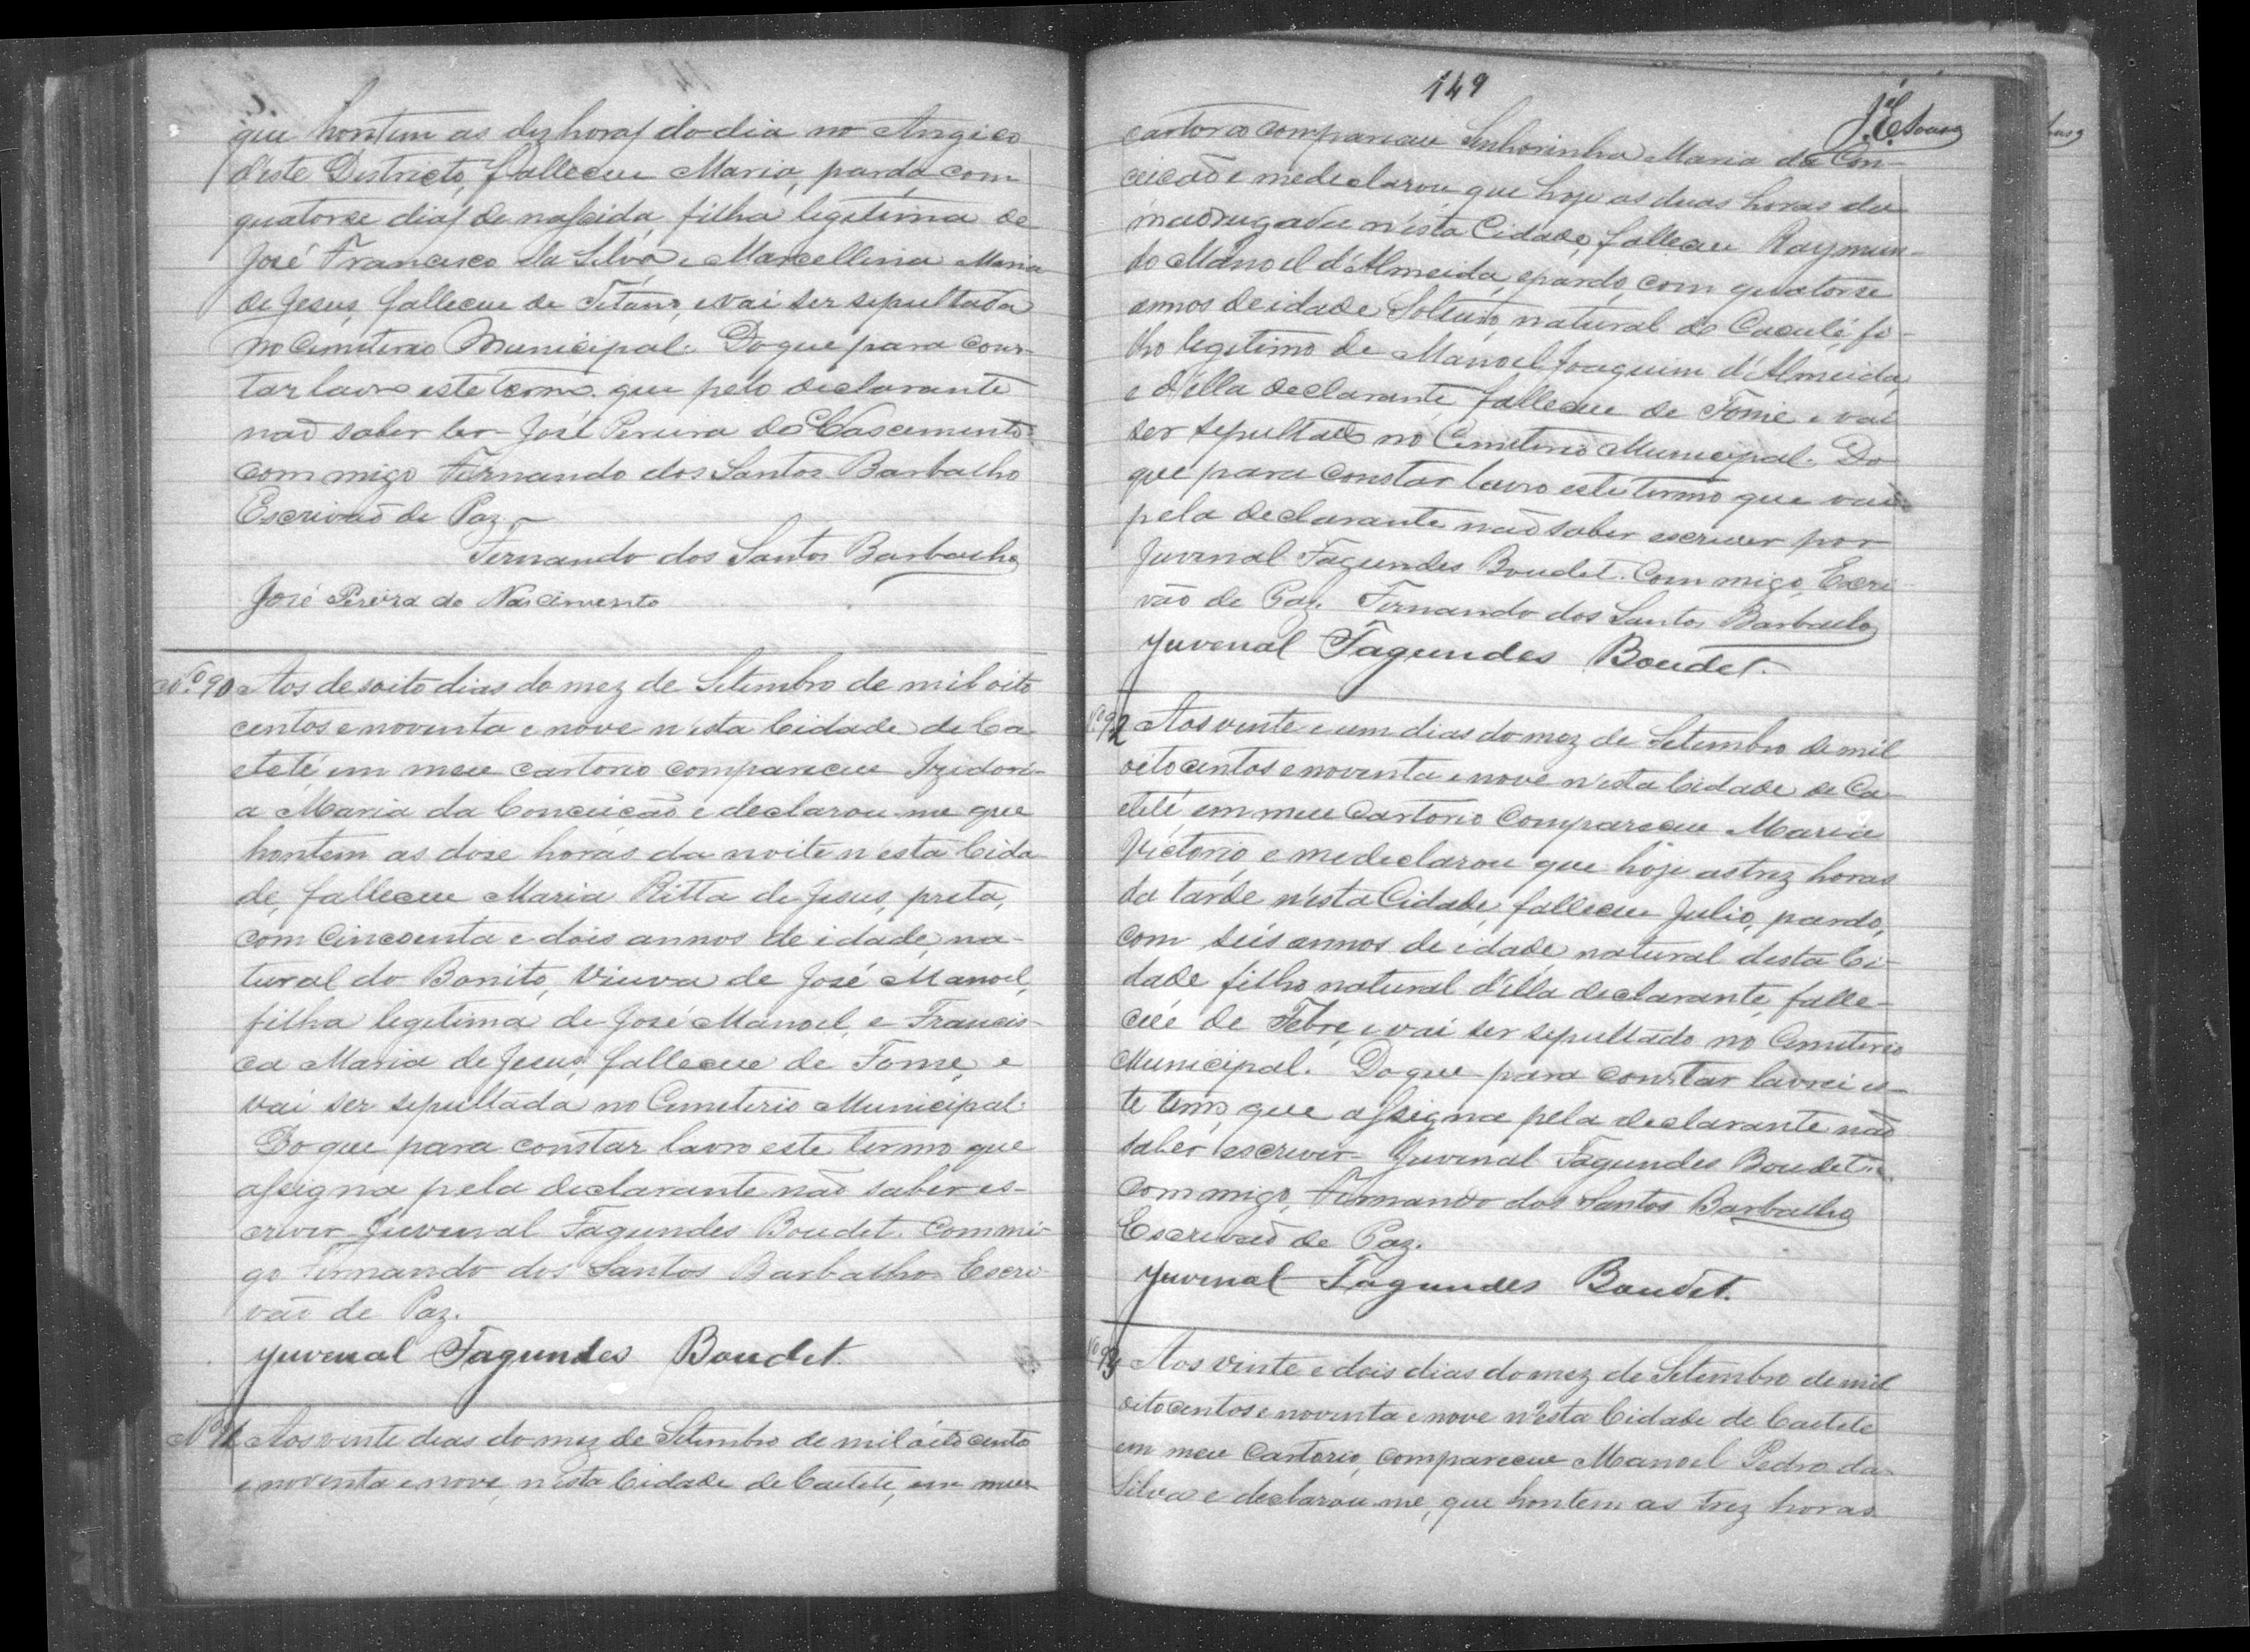 que hontem as dez horas do dia no Angico
d'este Districto, falleceu Maria, parda, com
quatorse dias de nascida, filha legitima de
José Francisco da Silva e Marcellina Maria
de Jesus, falleceu de Tetano, e vai ser sepultada
no Cimiterio Municipal. Do que para cons-
tar lavro este termo que pelo declarante
naõ saber ler José Pereira do Nascimento
commigo Fernando dos Santos Barbalho
Escrivaõ de Paz.
Fernando dos Santos Barbalho
José Pereira do Nascimento
Nº 90 Aos desoito dias do mez de Setembro de mil oito
centos e noventa e nove n'esta Cidade de Ca
eteté em meu cartorio compareceu Izidori-
a Maria da Conceicaõ e declarou-me que
hontem as dose horas da noite n'esta Cida
de, falleceu Maria Ritta de Jesus, preta,
com cincoenta e dois annos de idade, na-
tural do Bonito, viuva de José Manoel,
filha legitima de José Manoel, e Francis-
ca Maria de Jesus, falleceu de Fome, e
vai ser sepultada no Cimeterio Municipal.
Do que para constar lavro este termo que
assigna pela declarante naõ saber es-
crever Juvenal Fagundes Boudet. Commi-
go Fernando dos Santos Barbalho Escri-
vaõ de Paz.
Juvenal Fagundes Boudet.
Nº 91 Aos vinte dias do mez de Setembro de mil oito cento
e noventa e nove, n'esta Cidade de Caeteté, em meu
149
J. E. Souza
cartorio compareceu Senhorinha Maria da Con-
ceicaõ e me declarou que hoje as duas horas da
madrugada n'esta Cidade, falleceu Raymun-
do Manoel d'Almeida, pardo, com quatorse
annos de idade Solteiro, natural do Caculé, fi-
lho legitimo de Manoel Joaquim d'Almeida,
e d'ella declarante, falleceu de Fome e vai
ser sepultado no Cimiterio Municipal. Do
que para constar lavro este termo que vai
pela declarante naõ saber escrever por
Juvenal Fagundes Boudet. Commigo, Escri
vão de Paz. Fernando dos Santos Barbalho
Juvenal Fagundes Boudet.
Nº 92 Aos vinte e um dias do mez de Setembro de mil
oito centos e noventa e nove n'esta Cidade de Ca
eteté em meu Cartorio Compareceu Maria
Victorio, e me declarou que hoje as trez horas
da tarde n'esta Cidade, falleceu Julio, pardo,
com seis annos de idade, natural desta Ci-
dade filho natural d'ella declarante, falle-
ceu de Febre, e vai ser sepultado no Cimiterio
Municipal. Do que para constar lavrei es-
te termo, que assigna pela declarante naõ
saber escrever Juvenal Fagundes Boudet
Commigo, Fernando dos Santos Barbalho
Escrivaõ de Paz.
Juvenal Fagundes Boudet.
Nº 93 Aos vinte e dois dias do mez de Setembro de mil
oito centos e noventa e nove n'esta Cidade de Caeteté
em meu Cartorio, compareceu Manoel Pedro da
Silva e declarou-me, que hontem as trez horas